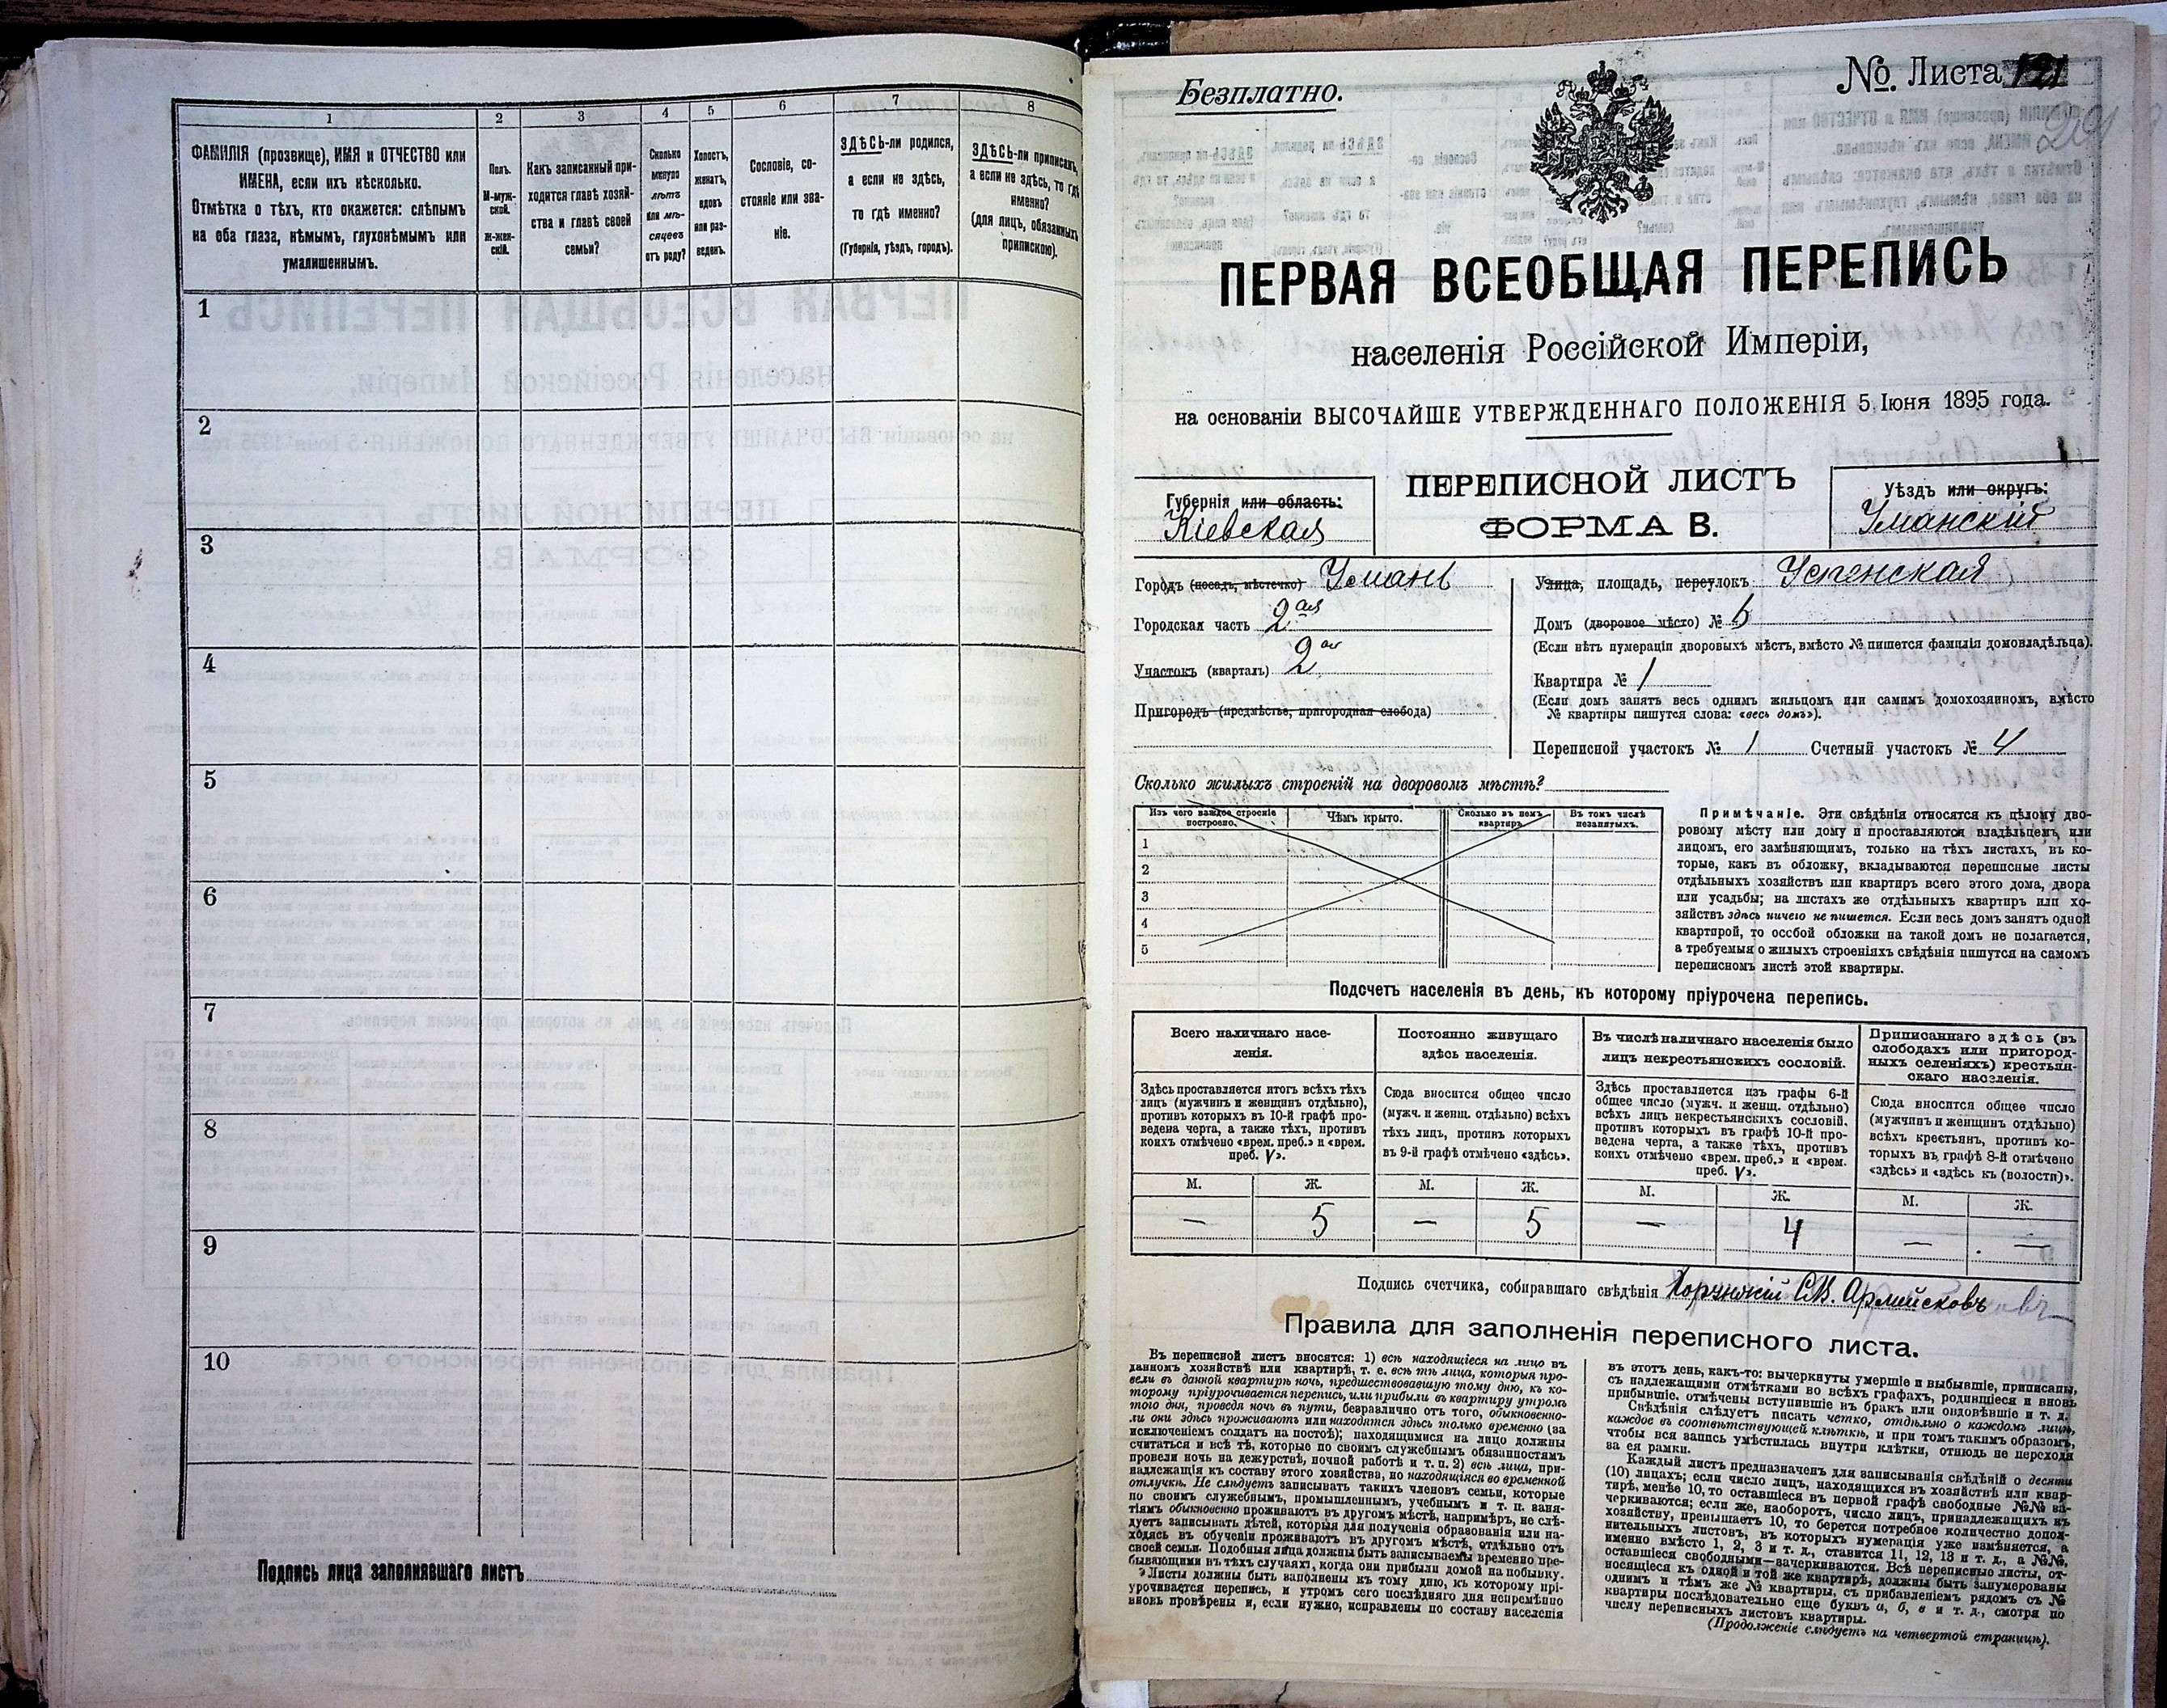 1
ФАМИЛІЯ (прозвище), ИМЯ и ОТЧЕСТВО или
ИМЕНА, если ихъ нѣсколько.
Отмѣтка о тѣхъ, кто окажется: слѣпымъ
на оба глаза, нѣмымъ, глухонѣмымъ или
умалишеннымъ.
2
Полъ.
М-муж-
ской.
Ж-жен-
скій.
3
Какъ записанный при-
ходится главѣ хозяй-
ства и главѣ своей
семьи?
4
Сколько
минуло
лѣтъ
или мѣ-
сяцевъ
отъ роду?
5
Холостъ,
женатъ,
вдовъ
или раз-
веденъ.
6
Сословіе, со-
стояніе или зва-
ніе.
7
ЗДѢСЬ-ли родился,
а если не здѣсь,
то гдѣ именно?
(Губернія, уѣздъ, городъ).
8
ЗДѢСЬ-ли приписанъ,
а если не здѣсь, то гдѣ
именно?
(для лицъ, обязанныхъ
припискою).
1
2
3
4
5
6
7
8
9
10
Подпись лица заполнявшаго листъ
Безплатно.
№ Листа 121
ПЕРВАЯ ВСЕОБЩАЯ ПЕРЕПИСЬ
населенія Россійской Имперіи,
на основаніи ВЫСОЧАЙШЕ УТВЕРЖДЕННАГО ПОЛОЖЕНІЯ 5 Іюня 1895 года.
Губернія или область:
Кіевская
ПЕРЕПИСНОЙ ЛИСТЪ
ФОРМА В.
Уѣздъ или округъ:
Уманскій
Городъ (посадъ, мѣстечко) Умань
Городская часть 2ая
Участокъ (кварталъ) 2ой
Пригородъ (предмѣстье, пригородная слобода)
Улица, площадь, переулокъ Успенская
Домъ (дворовое мѣсто) № 6
(Если нѣтъ нумераціи дворовыхъ мѣстъ, вмѣсто № пишется фамилія домовладѣльца).
Квартира № 1
(Если домъ занятъ весь однимъ жильцомъ или самимъ домохозяиномъ, вмѣсто
№ квартиры пишутся слова: «весь домъ»).
Переписной участокъ № 1 Счетный участокъ № 4
Сколько жилыхъ строеній на дворовомъ мѣстѣ?
Изъ чего каждое строеніе
построено.
Чѣмъ крыто.
Сколько въ немъ
квартиръ
Въ томъ числѣ
незанятыхъ.
1
2
3
4
5
Примѣчаніе. Эти свѣдѣнія относятся къ цѣлому дво-
ровому мѣсту или дому и проставляются владѣльцемъ или
лицомъ, его замѣняющимъ, только на тѣхъ листахъ, въ ко-
торые, какъ въ обложку, вкладываются переписные листы
отдѣльныхъ хозяйствъ или квартиръ всего этого дома, двора
или усадьбы; на листахъ же отдѣльныхъ квартиръ или хо-
зяйствъ здѣсь ничего не пишется. Если весь домъ занятъ одной
квартирой, то особой обложки на такой домъ не полагается,
а требуемыя о жилыхъ строеніяхъ свѣдѣнія пишутся на самомъ
переписномъ листѣ этой квартиры.
Подсчетъ населенія въ день, къ которому пріурочена перепись.
Всего наличнаго насе-
ленія.
Здѣсь проставляется итогъ всѣхъ тѣхъ
лицъ (мужчинъ и женщинъ отдѣльно),
противъ которыхъ въ 10-й графѣ про-
ведена черта, а также тѣхъ, противъ
коихъ отмѣчено «врем. преб.» и «врем.
преб. V».
Постоянно живущаго
здѣсь населенія.
Сюда вносится общее число
(мужч. и женщ. отдѣльно) всѣхъ
тѣхъ лицъ, противъ которыхъ
въ 9-й графѣ отмѣчено «здѣсь».
Въ числѣ наличнаго населенія было
лицъ некрестьянскихъ сословій.
Здѣсь проставляется изъ графы 6-й
общее число (мужч. и женщ. отдѣльно)
всѣхъ лицъ некрестьянскихъ сословій,
противъ которыхъ въ графѣ 10-й про-
ведена черта, а также тѣхъ, противъ
коихъ отмѣчено «врем. преб.» и «врем.
преб. V».
Приписаннаго здѣсь (въ
слободахъ или пригород-
ныхъ селеніяхъ) крестьян-
скаго населенія.
Сюда вносится общее число
(мужчинъ и женщинъ отдѣльно)
всѣхъ крестьянъ, противъ ко-
торыхъ въ графѣ 8-й отмѣчено
«здѣсь» и «здѣсь къ (волости)».
М. Ж. М. Ж. М. Ж. М. Ж.
— 5 — 5 — 4 — —
Подпись счетчика, собиравшаго свѣдѣнія Хорунжій С.В. Армейсковъ
Правила для заполненія переписного листа.
Въ переписной листъ вносятся: 1) всѣ находящіеся на лицо въ
данномъ хозяйствѣ или квартирѣ, т. е. всѣ тѣ лица, которыя про-
вели въ данной квартирѣ ночь, предшествовавшую тому дню, къ ко-
торому пріурочивается перепись, или прибыли въ квартиру утромъ
того дня, проведя ночь въ пути, безразлично отъ того, обыкновенно-
ли они здѣсь проживаютъ или находятся здѣсь только временно (за
исключеніемъ солдатъ на постоѣ); находящимися на лицо должны
считаться и всѣ тѣ, которые по своимъ служебнымъ обязанностямъ
провели ночь на дежурствѣ, ночной работѣ и т. п. 2) всѣ лица, при-
надлежащія къ составу этого хозяйства, но находящіяся во временной
отлучкѣ. Не слѣдуетъ записывать такихъ членовъ семьи, которые
по своимъ служебнымъ, промышленнымъ, учебнымъ и т. п. заня-
тіямъ обыкновенно проживаютъ въ другомъ мѣстѣ, напримѣръ, не слѣ-
дуетъ записывать дѣтей, которыя для полученія образованія или на-
ходясь въ обученіи проживаютъ въ другомъ мѣстѣ, отдѣльно отъ
своей семьи. Подобныя лица должны быть записываемы временно пре-
бывающими въ тѣхъ случаяхъ, когда они прибыли домой на побывку.
Листы должны быть заполнены къ тому дню, къ которому прі-
урочивается перепись, и утромъ сего послѣдняго дня непремѣнно
вновь провѣрены и, если нужно, исправлены по составу населенія
въ этотъ день, какъ-то: вычеркнуты умершіе и выбывшіе, приписаны,
съ надлежащими отмѣтками во всѣхъ графахъ, родившіеся и вновь
прибывшіе, отмѣчены вступившіе въ бракъ или овдовѣвшіе и т. д.
Свѣдѣнія слѣдуетъ писать четко, отдѣльно о каждомъ лицѣ,
каждое въ соотвѣтствующей клѣткѣ, и при томъ такимъ образомъ,
чтобы вся запись умѣстилась внутри клѣтки, отнюдь не переходя
за ея рамки.
Каждый листъ предназначенъ для записыванія свѣдѣній о десяти
(10) лицахъ; если число лицъ, находящихся въ хозяйствѣ или квар-
тирѣ, менѣе 10, то оставшіеся въ первой графѣ свободные №№ за-
черкиваются; если же, наоборотъ, число лицъ, принадлежащихъ къ
хозяйству, превышаетъ 10, то берется потребное количество допол-
нительныхъ листовъ, въ которыхъ нумерація уже измѣняется, а
именно вмѣсто 1, 2, 3 и т. д., ставится 11, 12, 13 и т. д., а №№,
оставшіеся свободными—зачеркиваются. Всѣ переписные листы, от-
носящіеся къ одной и той же квартирѣ, должны быть занумерованы
однимъ и тѣмъ же № квартиры, съ прибавленіемъ рядомъ съ №
квартиры послѣдовательно еще буквъ а, б, в и т. д., смотря по
числу переписныхъ листовъ квартиры.
(Продолженіе слѣдуетъ на четвертой страницѣ).